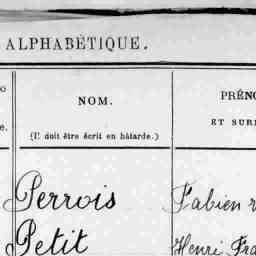 ALPHABÉTIQUE.
NOM.
(Il doit être écrit en bâtarde.)
PRÉNO
ET SURN
e.
Perrois Fabien
Petit Henri Fra